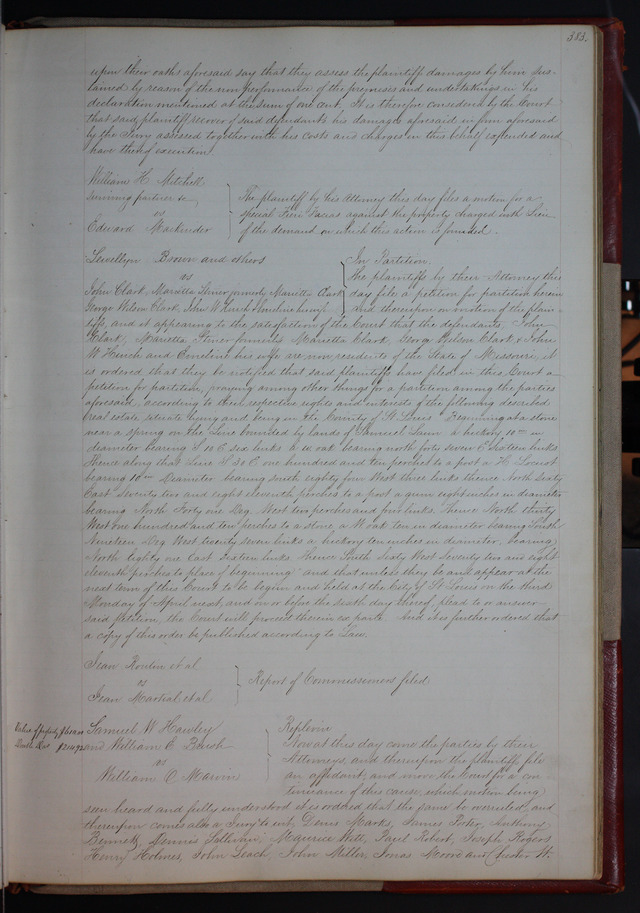 383.
upon their oaths aforesaid say that they assess the plaintiffs damages by him sus-
tained by reason of the non performance of the promises and undertakings in his
declaration mentioned at the sum of one cent. It is therefore considered by the Court
that said plaintiff recover of said defendants his damages aforesaid in form aforesaid
by the Jury assessed together with his costs and charges in this behalf expended and
have thereof execution.
William H. Mitchell
surviving partner &c
vs
Edward Mackinder
The plaintiff by his Attorney this day files a motion for a
special Fieri Facias against the property charged with Lien
of the demand on which this action is founded.
Lewellyn Brown and others
vs
John Clark, Marietta Stiner formerly Marietta Clark
George Wilson Clark, John W. Hench & Emeline his wife
In Partition.
The plaintiffs by their Attorney this
day file a petition for partition herein
and thereupon on motion of the plain-
tiffs, and it appearing to the satisfaction of the Court that the defendants, John
Clark, Marietta Stiner formerly Marietta Clark, George Wilson Clark & John
W Hench and Emeline his wife are non residents of the State of Missouri, it
is ordered that they be notified that said plaintiffs have filed in this Court a
petition for partition, praying among other things for a partition among the parties
aforesaid, according to their respective rights and interests of the following described
real estate, situate lying and being in the County of St Louis Beginning at a stone
near a spring on the Line bounded by lands of Samuel a hickory 10 in
diameter bearing S 10 E six links & a w oak bearing north forty seven E sixteen links
thence along that Line S 30 E one hundred and ten perches to a post a H Locust
bearing 10 in Diameter bearing south eighty four West three links thence North Sixty
East Seventy two and eight eleventh perches to a post a gum eight inches in diameter
bearing North Forty one Deg. West two perches and four links, Thence North thirty
West one hundred and ten perches to a stone, a W. oak ten in diameter bearing South
Nineteen Deg West twenty seven links a hickory ten inches in diameter, bearing
North Eighty one East Sixteen links Thence South Sixty West Seventy two and eight
eleventh perches to place of beginning" and that unless they be and appear at the
next term of this Court to be begun and held at the City of St Louis on the third
Monday of April next, and on or before the sixth day thereof, plead to or answer
said petition, the Court will proceed therein ex parte. And it is further ordered that
a copy of this order be published according to Law.
Jean et al
vs
Jean Martial et al
Report of Commissioners filed
Value of property
Samuel W Hawley
and William C
vs
William O Marvin
Replevin
Now at this day come the parties by their
Attorneys, and thereupon the plaintiffs file
an affidavit, and move the Court for a con-
tinuance of this cause, which motion being
seen heard and fully understood it is ordered that the same be overruled, and
thereupon comes also a Jury to wit, Denis Marks, James Porter, Anthony
Bennett, Dennis Sullivan, Maurice Witt, Paul Robert, Joseph Rogers
Henry Holmes, John Leach, John Miller, Jonas Moore and Chester W.